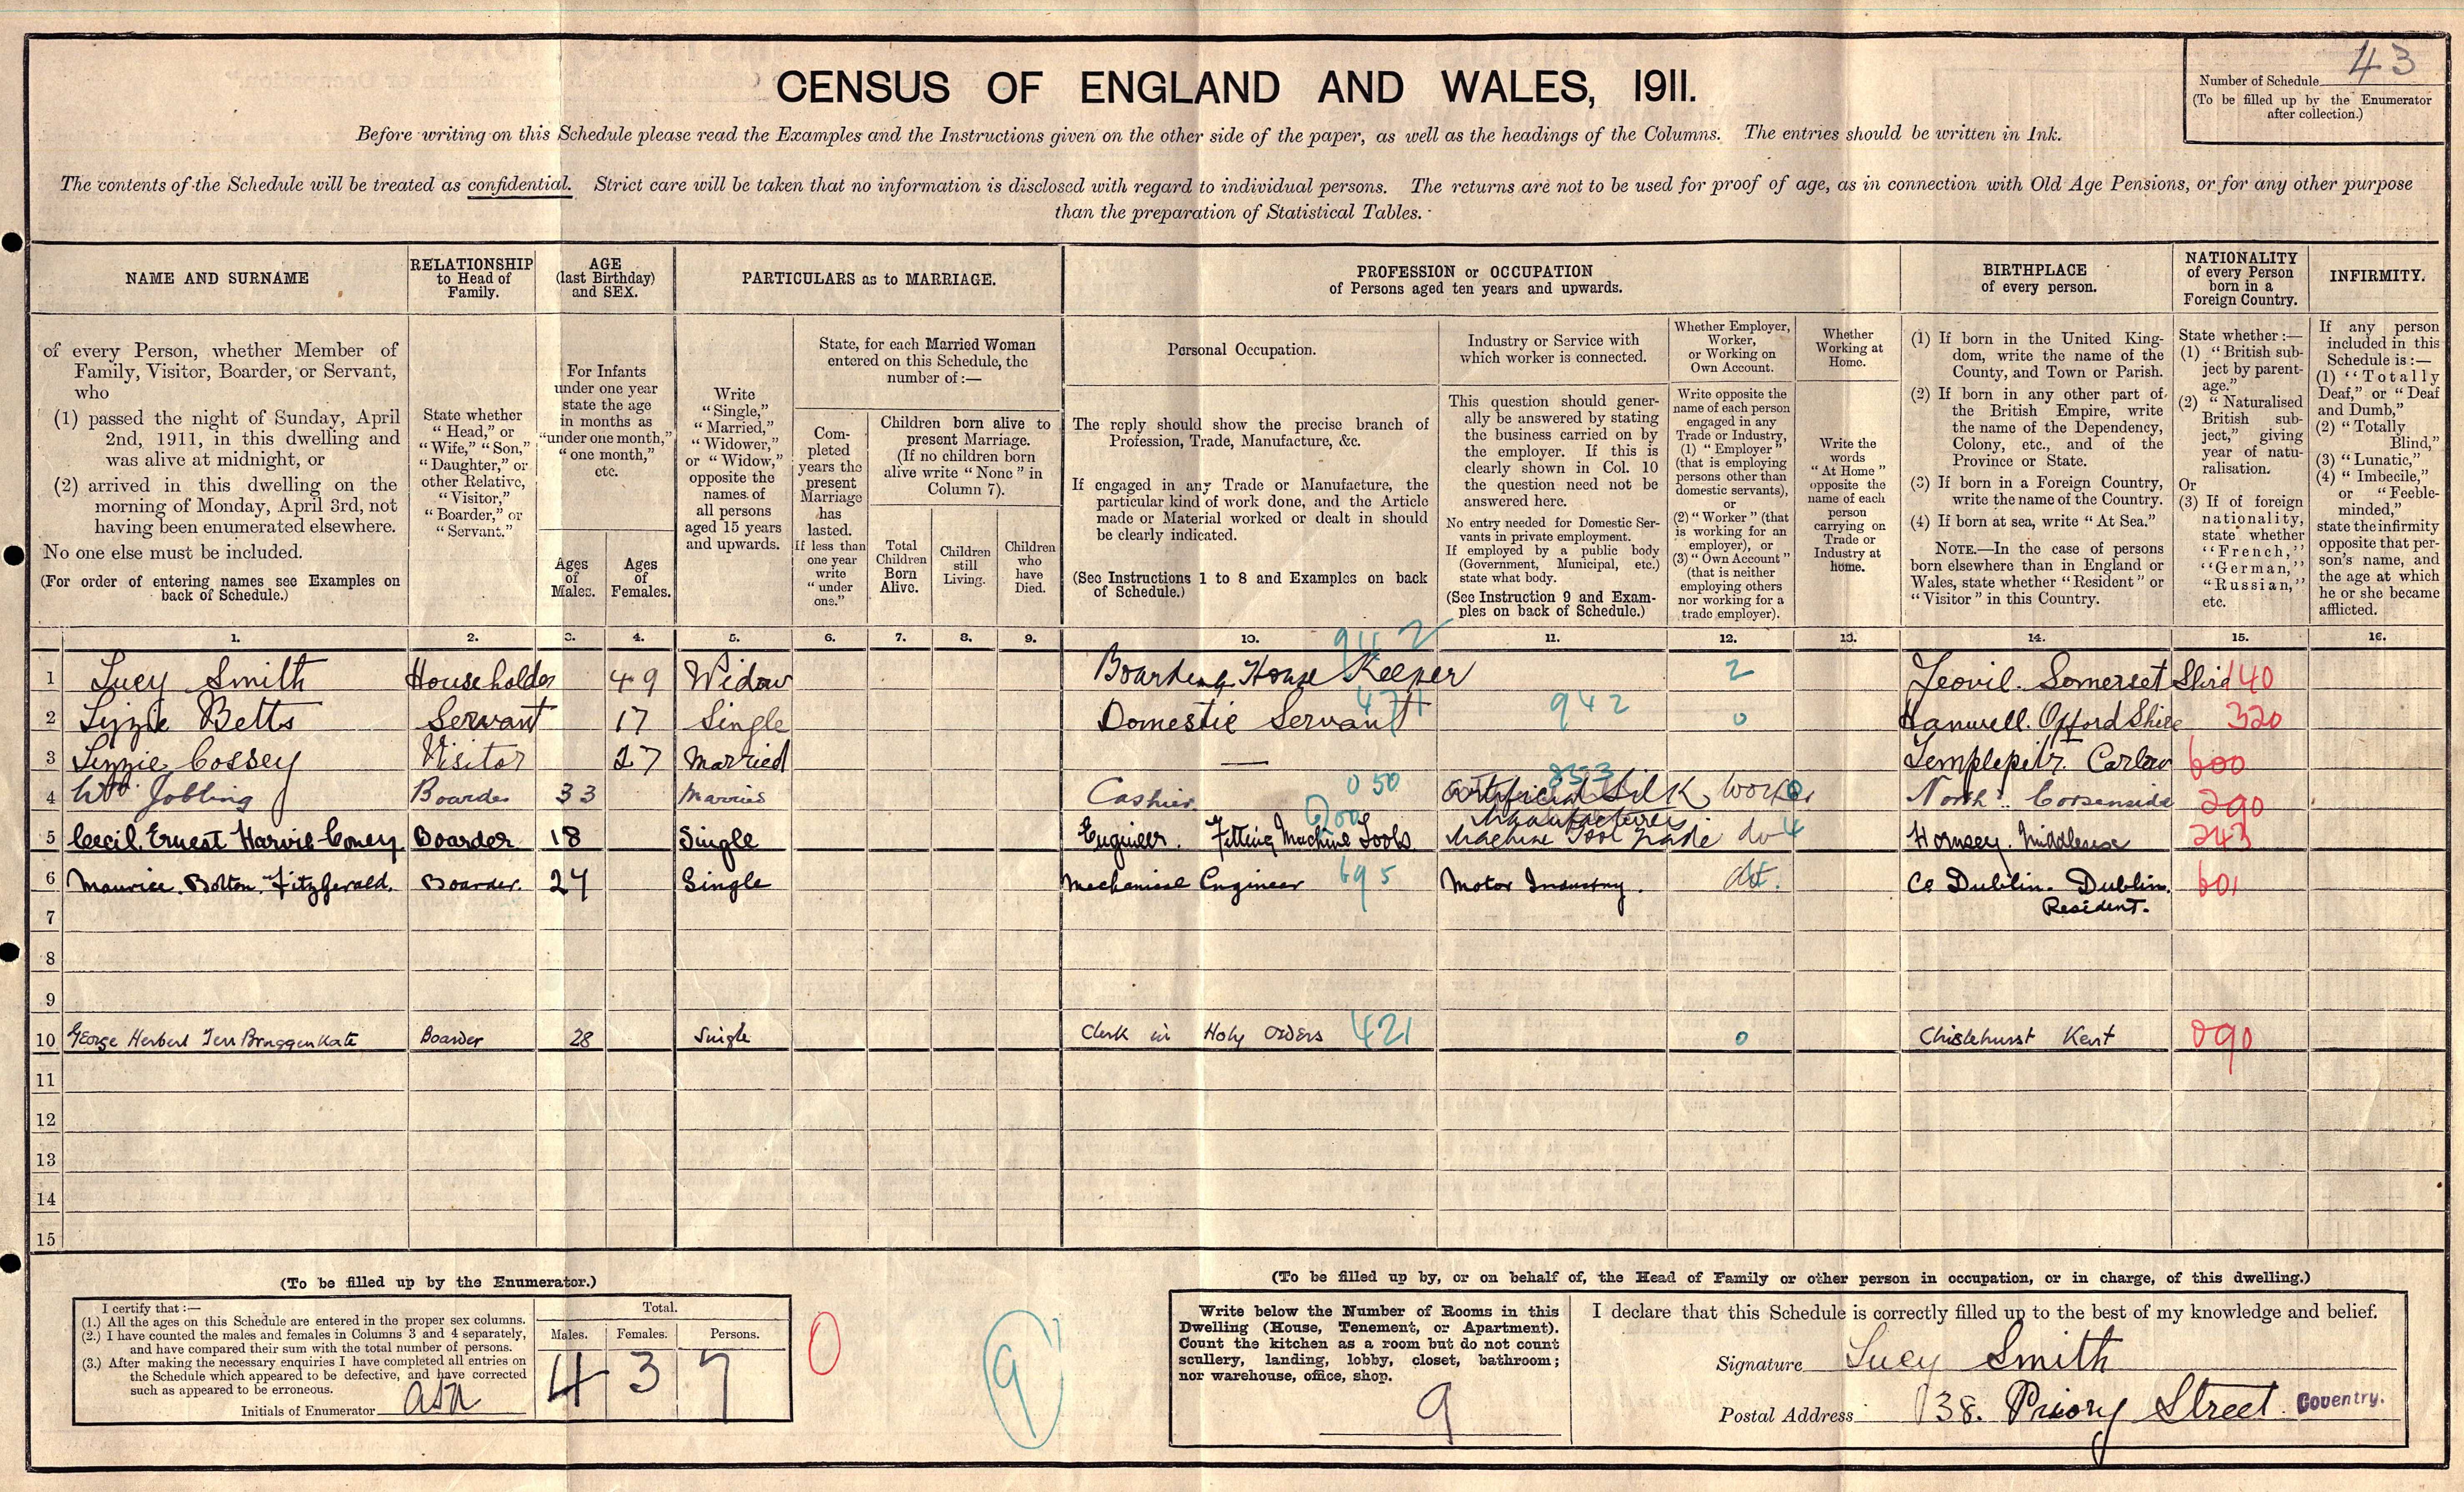 CENSUS OF ENGLAND AND WALES, 1911.
Number of Schedule 43
(To be filled up by the Enumerator
after collection.)
Before writing on this Schedule please read the Examples and the Instructions given on the other side of the paper, as well as the headings of the Columns. The entries should be written in Ink.
The contents of the Schedule will be treated as confidential. Strict care will be taken that no information is disclosed with regard to individual persons. The returns are not to be used for proof of age, as in connection with Old Age Pensions, or for any other purpose
than the preparation of Statistical Tables.
NAME AND SURNAME
of every Person, whether Member of
Family, Visitor, Boarder, or Servant,
who
(1) passed the night of Sunday, April
2nd, 1911, in this dwelling and
was alive at midnight, or
(2) arrived in this dwelling on the
morning of Monday, April 3rd, not
having been enumerated elsewhere.
No one else must be included.
(For order of entering names see Examples on
back of Schedule.)
RELATIONSHIP
to Head of
Family.
State whether
"Head," or
"Wife," "Son,"
"Daughter," or
other Relative,
"Visitor,"
"Boarder," or
"Servant."
AGE
(last Birthday)
and SEX.
For Infants
under one year
state the age
in months as
"under one month,"
"one month,"
etc.
Ages
of
Males.
Ages
of
Females.
PARTICULARS as to MARRIAGE.
Write
"Single,"
"Married,"
"Widower,"
or "Widow,"
opposite the
names of
all persons
aged 15 years
and upwards.
State, for each Married Woman
entered on this Schedule, the
number of:—
Com-
pleted
years the
present
Marriage
has
lasted.
If less than
one year
write
"under
one."
Children born alive to
present Marriage.
(If no children born
alive write "None" in
Column 7).
Total
Children
Born
Alive.
Children
still
Living.
Children
who
have
Died.
PROFESSION or OCCUPATION
of Persons aged ten years and upwards.
Personal Occupation.
The reply should show the precise branch of
Profession, Trade, Manufacture, &c.
If engaged in any Trade or Manufacture, the
particular kind of work done, and the Article
made or Material worked or dealt in should
be clearly indicated.
(See Instructions 1 to 8 and Examples on back
of Schedule.)
Industry or Service with
which worker is connected.
This question should gener-
ally be answered by stating
the business carried on by
the employer. If this is
clearly shown in Col. 10
the question need not be
answered here.
No entry needed for Domestic Ser-
vants in private employment.
If employed by a public body
(Government, Municipal, etc.)
state what body.
(See Instruction 9 and Exam-
ples on back of Schedule.)
Whether Employer,
Worker,
or Working on
Own Account.
Write opposite the
name of each person
engaged in any
Trade or Industry,
(1) "Employer"
(that is employing
persons other than
domestic servants),
or
(2) "Worker" (that
is working for an
employer), or
(3) "Own Account"
(that is neither
employing others
nor working for a
trade employer).
Whether
Working at
Home.
Write the
words
"At Home"
opposite the
name of each
person
carrying on
Trade or
Industry at
home.
BIRTHPLACE
of every person.
(1) If born in the United King-
dom, write the name of the
County, and Town or Parish.
(2) If born in any other part of
the British Empire, write
the name of the Dependency,
Colony, etc., and of the
Province or State.
(3) If born in a Foreign Country,
write the name of the Country.
(4) If born at sea, write "At Sea."
NOTE.—In the case of persons
born elsewhere than in England or
Wales, state whether "Resident" or
"Visitor" in this Country.
NATIONALITY
of every Person
born in a
Foreign Country.
State whether:—
(1) "British sub-
ject by parent-
age."
(2) "Naturalised
British sub-
ject," giving
year of natu-
ralisation.
Or
(3) If of foreign
nationality,
state whether
"French,"
"German,"
"Russian,"
etc.
INFIRMITY.
If any person
included in this
Schedule is:—
(1) "Totally
Deaf," or "Deaf
and Dumb,"
(2) "Totally
Blind,"
(3) "Lunatic,"
(4) "Imbecile,"
or "Feeble-
minded,"
state the infirmity
opposite that per-
son's name, and
the age at which
he or she became
afflicted.
1. 2. 3. 4. 5. 6. 7. 8. 9. 10. 11. 12. 13. 14. 15. 16.
942
1 Lucy Smith Householder 49 Widow Boarding House Keeper 2 Yeovil. Somerset Shire 140
2 Lizzie Betts Servant 17 Single Domestic Servant 471 942 0 Hanwell. Oxford Shire 320
3 Lizzie Cossey Visitor 27 Married — Carlow 600
4 Wm Jobling Boarder 33 Married Cashier 050 Artificial Silk 853 Worker North Corsenside 290
Manufacturers
5 Cecil Ernest Harvie Coney Boarder 18 Single Engineer. Fitting Machine Tools. Machine Tool Trade do 4 Hornsey. Middlesex 243
6 Maurice Bolton Fitzgerald. Boarder. 24 Single Mechanical Engineer 695 Motor Industry. Co Dublin. Dublin. 601
Resident.
7
8
9
10 George Herbert Ten Bruggenkate Boarder 28 Single Clerk in Holy Orders 421 0 Chislehurst Kent 090
11
12
13
14
15
(To be filled up by the Enumerator.)
I certify that:—
(1.) All the ages on this Schedule are entered in the proper sex columns.
(2.) I have counted the males and females in Columns 3 and 4 separately,
and have compared their sum with the total number of persons.
(3.) After making the necessary enquiries I have completed all entries on
the Schedule which appeared to be defective, and have corrected
such as appeared to be erroneous.
Initials of Enumerator
Total.
Males. Females. Persons.
4 3 7
0
9
(To be filled up by, or on behalf of, the Head of Family or other person in occupation, or in charge, of this dwelling.)
Write below the Number of Rooms in this
Dwelling (House, Tenement, or Apartment).
Count the kitchen as a room but do not count
scullery, landing, lobby, closet, bathroom;
nor warehouse, office, shop.
9
I declare that this Schedule is correctly filled up to the best of my knowledge and belief.
Signature Lucy Smith
Postal Address 38. Priory Street. Coventry.